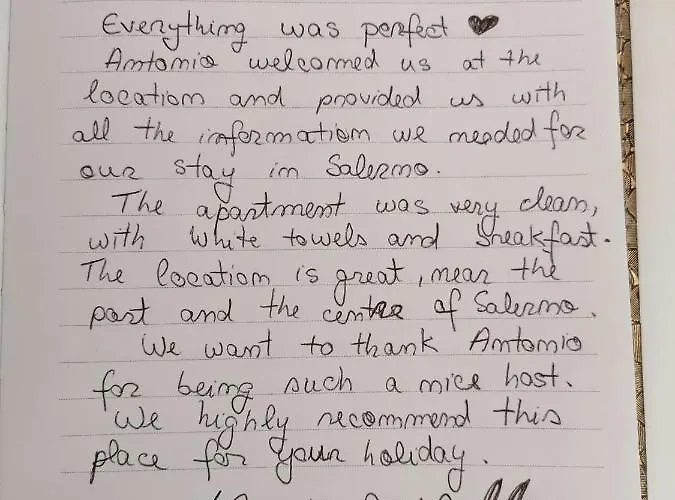 Everything was perfect ♥
Antonio welcomed us at the
location and provided us with
all the information we needed for
our stay in Salerno.
The apartment was very clean,
with white towels and breakfast.
The location is great, near the
port and the centre of Salerno.
We want to thank Antonio
for being such a nice host.
We highly recommend this
place for your holiday.